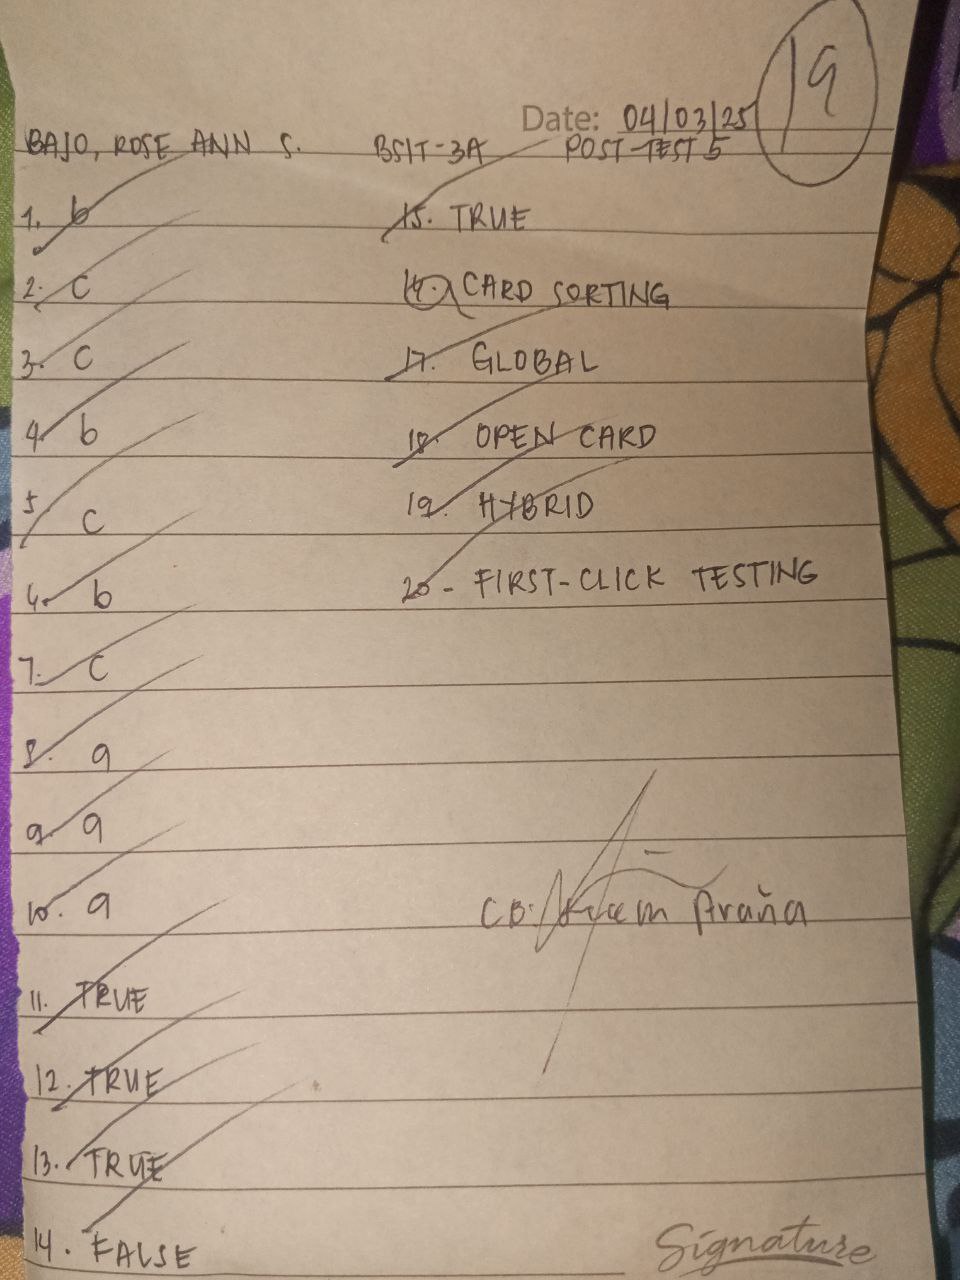 19
Date: 04/03/25
BAJO, ROSE ANN S. BSIT-3A POST-TEST 5
1. b
2. C
3. C
4. b
5. C
6. b
7. C
8. a
9. a
10. a
11. TRUE
12. TRUE
13. TRUE
14. FALSE
15. TRUE
16. CARD SORTING
17. GLOBAL
18. OPEN CARD
19. HYBRID
20- FIRST-CLICK TESTING
CB: Araña
Signature